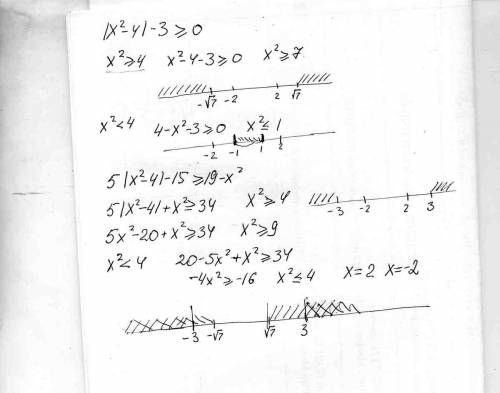 |x²-4|-3≥0
x²≥4 x²-4-3≥0 x²≥7
-√7 -2 2 √7
x²<4 4-x²-3≥0 x²≤1
-2 -1 1 2
5|x²-4|-15≥19-x²
5|x²-4|+x²≥34 x²≥4
-3 -2 2 3
5x²-20+x²≥34 x²≥9
x²<4 20-5x²+x²≥34
-4x²≥-16 x²≤4 x=2 x=-2
-3 -√7 √7 3